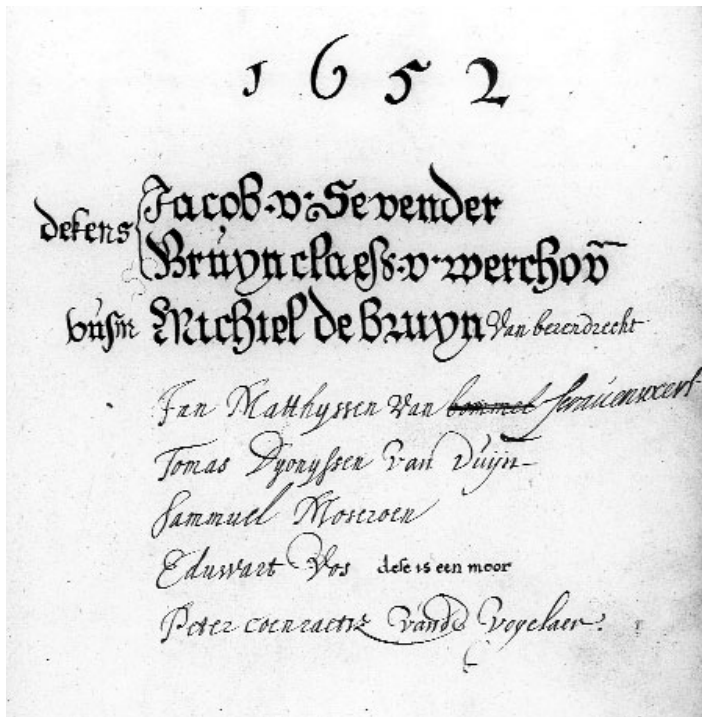 1652
dekens
Jacob·v: Sevender
Bruÿn claess·v·werchov̄
Michiel de bruyn Van berendrecht
Jan Matthyssen Van bommel
Tomas Dyonyssen Van Duijn
Sammuel Moseroen
Eduwart Vos dese is een moor
Peter Vand Vogelaer.